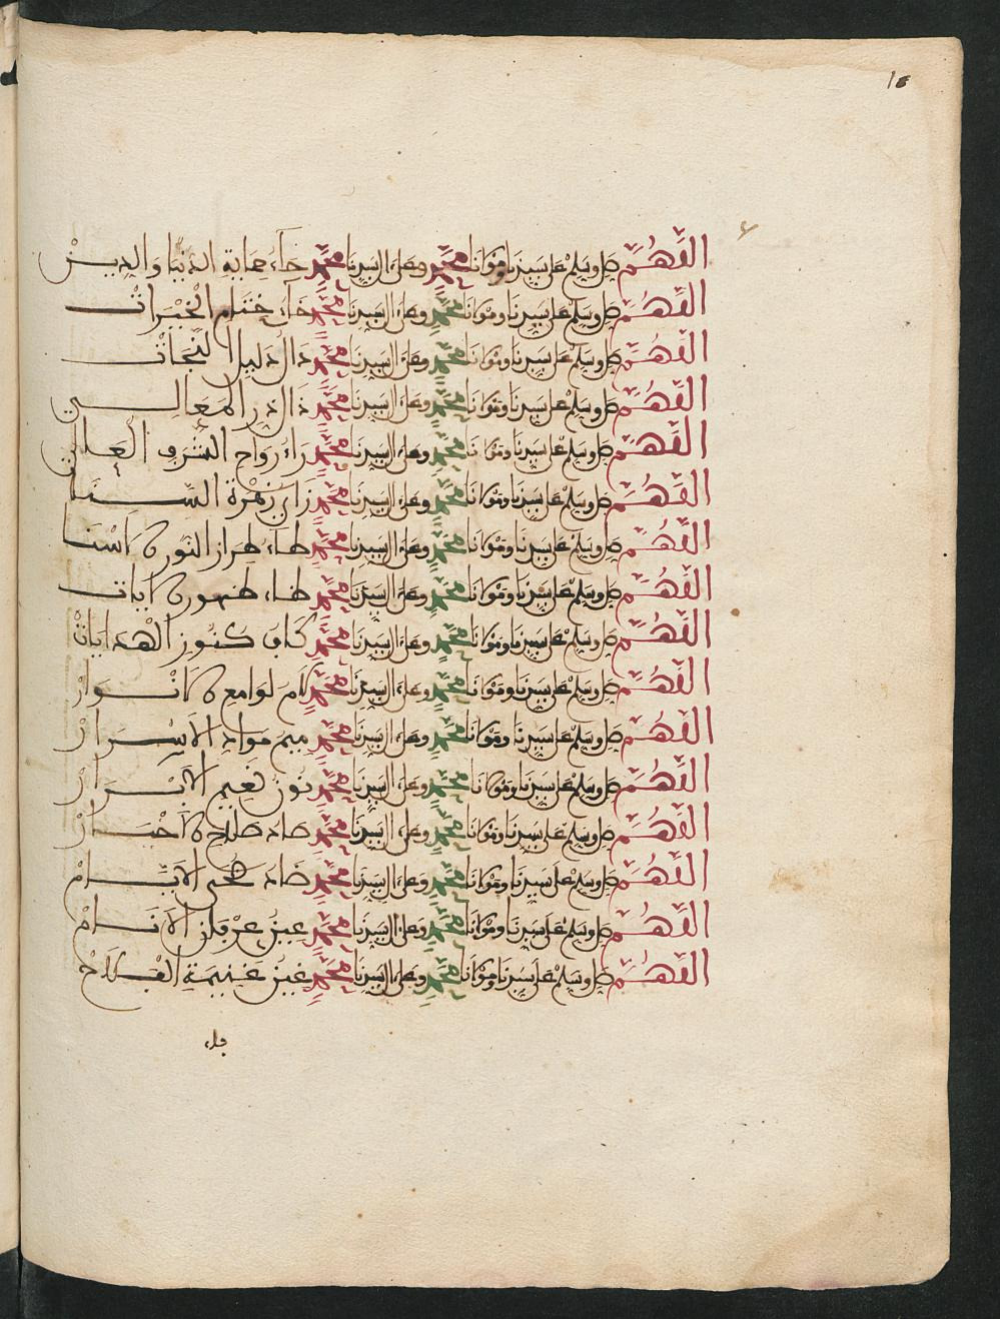 10
اللهم صل وسلم على سيدنا ومولانا محمد وعلى ال سيدنا محمد حاء حماية الدنيا والدين
اللهم صل وسلم على سيدنا ومولانا محمد وعلى ال سيدنا محمد خاء ختام الخيرات
اللهم صل وسلم على سيدنا ومولانا محمد وعلى ال سيدنا محمد دال دليل النجات
اللهم صل وسلم على سيدنا ومولانا محمد وعلى ال سيدنا محمد ذال در المعالي
اللهم صل وسلم على سيدنا ومولانا محمد وعلى ال سيدنا محمد راء رواح الشرف العلي
اللهم صل وسلم على سيدنا ومولانا محمد وعلى ال سيدنا محمد زاي زهرة السنا
اللهم صل وسلم على سيدنا ومولانا محمد وعلى ال سيدنا محمد طاء طراز النور الاسنا
اللهم صل وسلم على سيدنا ومولانا محمد وعلى ال سيدنا محمد ظاء ظهور الايات
اللهم صل وسلم على سيدنا ومولانا محمد وعلى ال سيدنا محمد كاف كنوز الهدايات
اللهم صل وسلم على سيدنا ومولانا محمد وعلى ال سيدنا محمد لام لوامع الانوار
اللهم صل وسلم على سيدنا ومولانا محمد وعلى ال سيدنا محمد ميم مواد الاسرار
اللهم صل وسلم على سيدنا ومولانا محمد وعلى ال سيدنا محمد نون نعيم الابرار
اللهم صل وسلم على سيدنا ومولانا محمد وعلى ال سيدنا محمد صاد صلاح الاخيار
اللهم صل وسلم على سيدنا ومولانا محمد وعلى ال سيدنا محمد ضاد ضحى الايام
اللهم صل وسلم على سيدنا ومولانا محمد وعلى ال سيدنا محمد عين عرفان الانام
اللهم صل وسلم على سيدنا ومولانا محمد وعلى ال سيدنا محمد غين غنيمة الفلاح
فاء